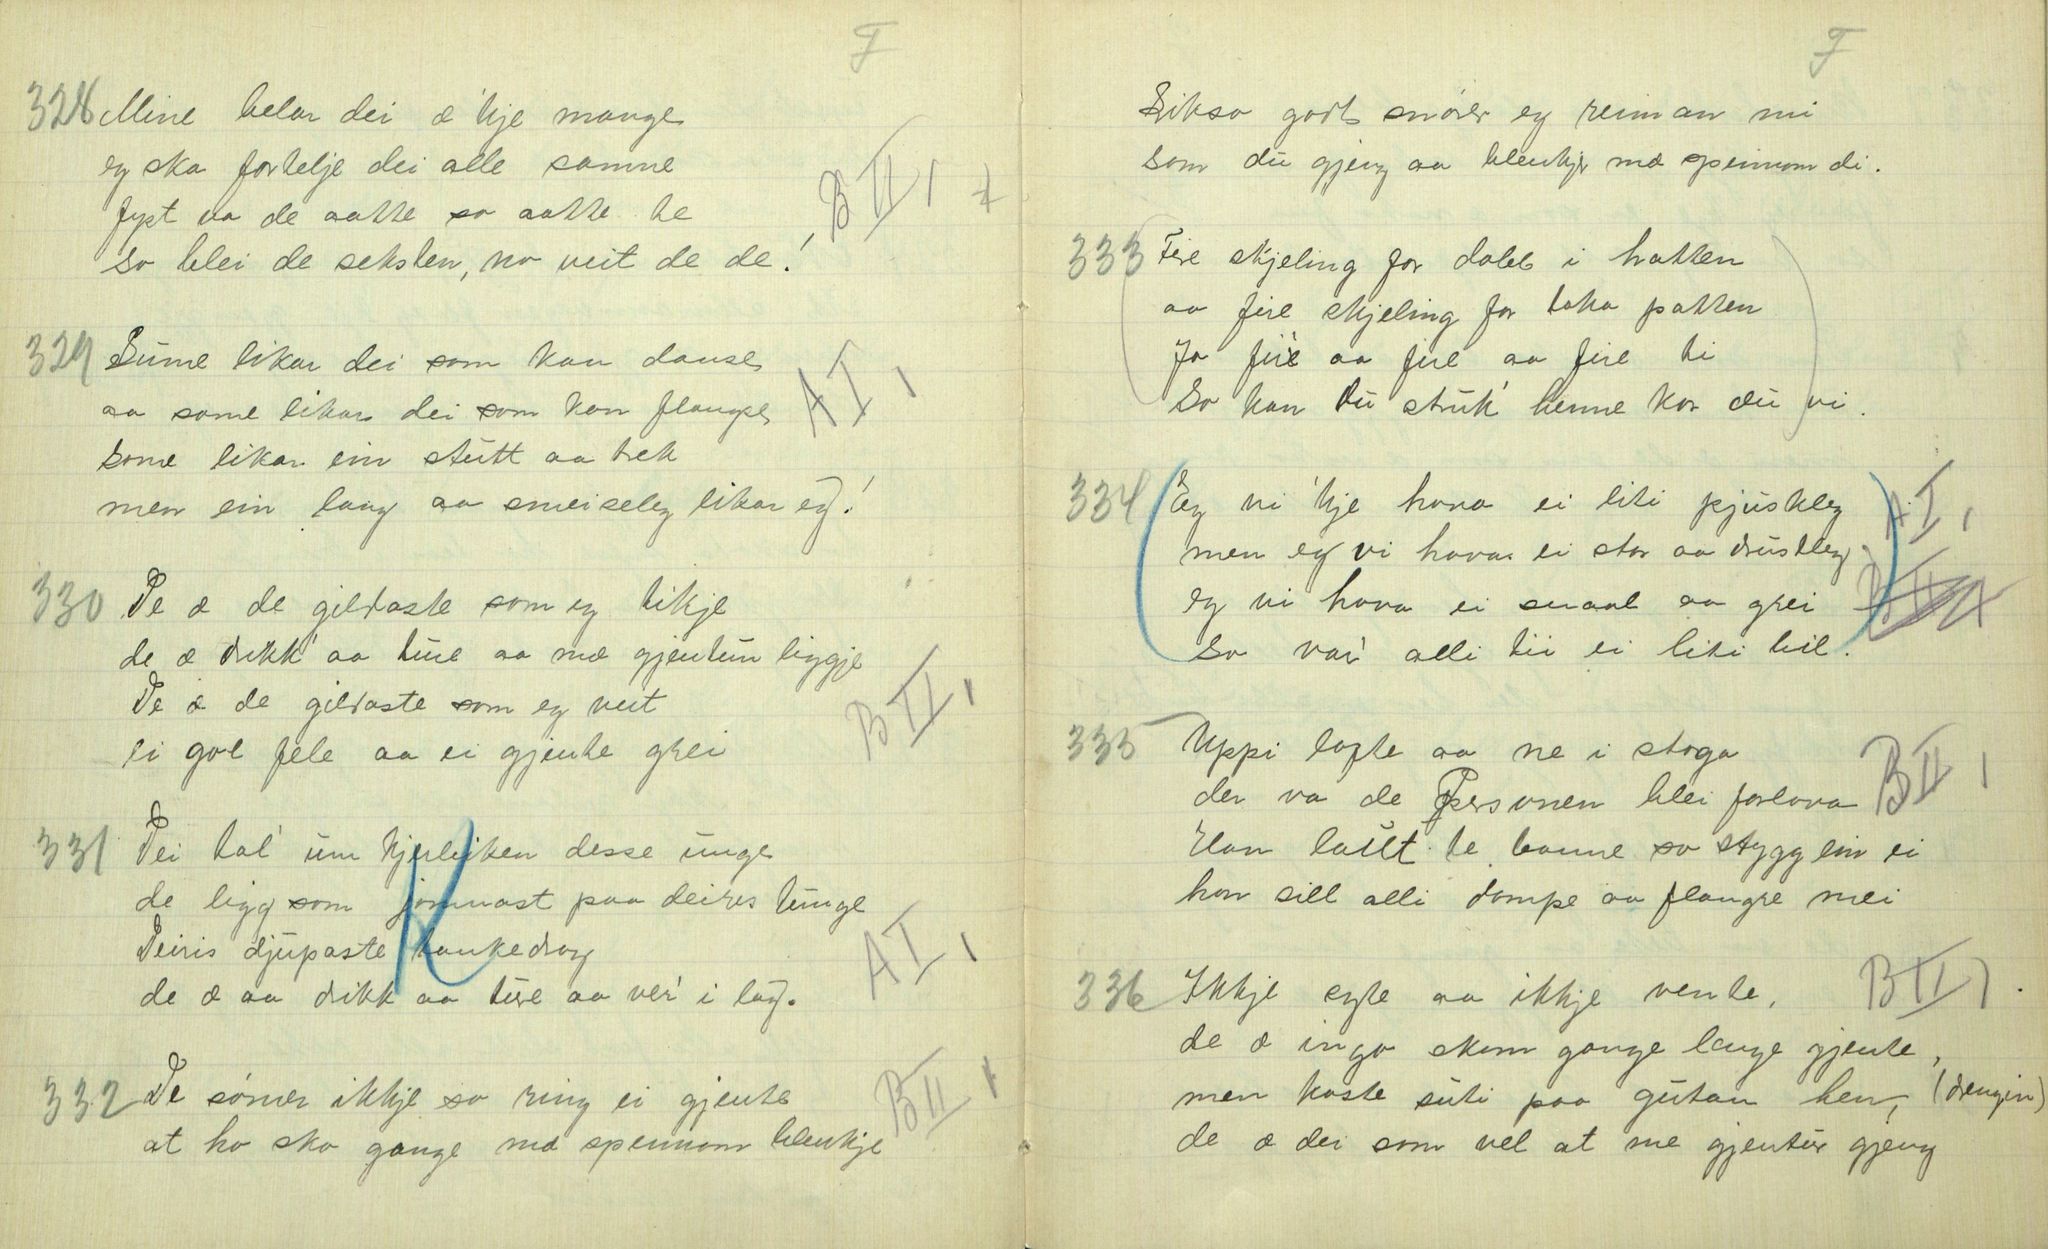 F
328 Mine belar dei æ 'kje mange
eg ska fortelje dei alle samne
fyst va de aatte so aatte te
so blei de seksten, no veit de de!
B II 1
329 Sume likar dei som kan danse
aa some likar dei som kan flangse
some likar ein stutt aa trek
men ein lang aa smeiseleg likar eg!
A I 1
330 De æ de gildaste som eg tikje
de æ drikk' aa ture aa mæ gjentun liggje
De æ de gildaste som eg veit
ei go fele aa ei gjente grei
B II 1
331 Dei tal' um kjerleiken desse unge
de ligg som jamnast paa deires tunge
Deiris djupaste tankedrag
de æ aa drikk aa ture aa ver' i lag.
K
A I 1
332 De sómer ikkje so ring ei gjente
at ho ska gange mæ spennom blenkje
B II 1
F
Likso godt snórer eg reiman mi
som du gjeng aa blenkje mæ spennom di.
333 Fire skjeling for dalb i hatten
aa fire skjeling for taka patten
Ja fire aa fire aa fire ti
So kan du struk' henne kor du vi.
334 Eg vi 'kje hava ei liti pjuskleg
men eg vi hava ei stor aa drusteleg
eg vi hava ei snaal aa grei
so var' alli tii ei liti teil.
A I 1
B II
335 Uppi lofte aa ne i stoga
der va de Personen blei forlova
Han laut te banne so stygg ein ei
han sill alli dampe aa flangre mei
B II 1
336 Ikkje syte aa ikkje vente,
de æ inga skam gange lange gjente,
men kaste suti paa gutan hen, (drengin)
de æ dei som vel at me gjentur gjeng
B II 1